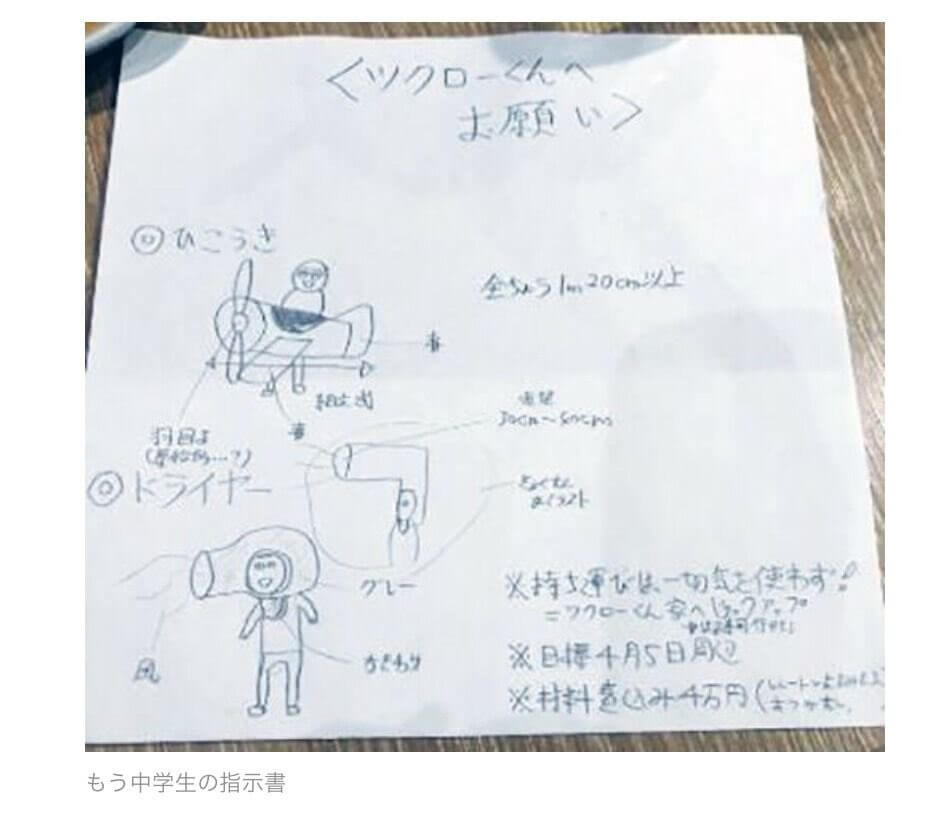 <ツクローくんへ
お願い>
◎ひこうき
全ちょう1m20cm以上
赤
組立式
赤
羽回よ
30cm〜50cm
◎ドライヤー
グレー
風
※持ち運びは、一切気を使わず!
=ツクローくん家へピックアップ
※目標4月5日周辺
※材料費込み4万円(
もう中学生の指示書